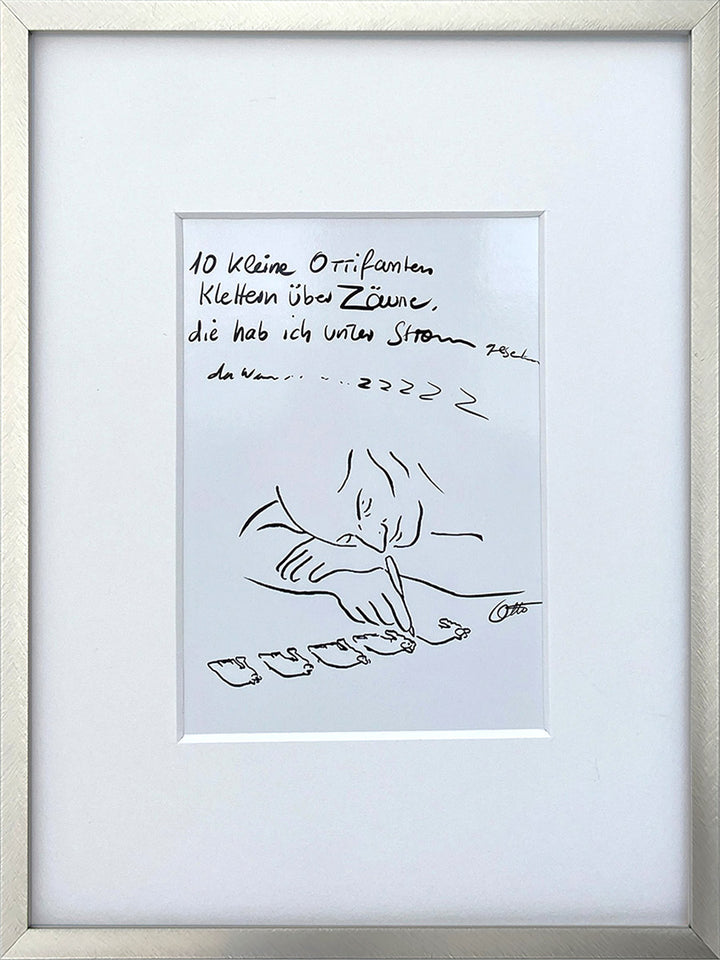 10 kleine Ottifanten
klettern über Zäune,
die hab ich unter Strom gesehn
da war........zzzzz
Otto